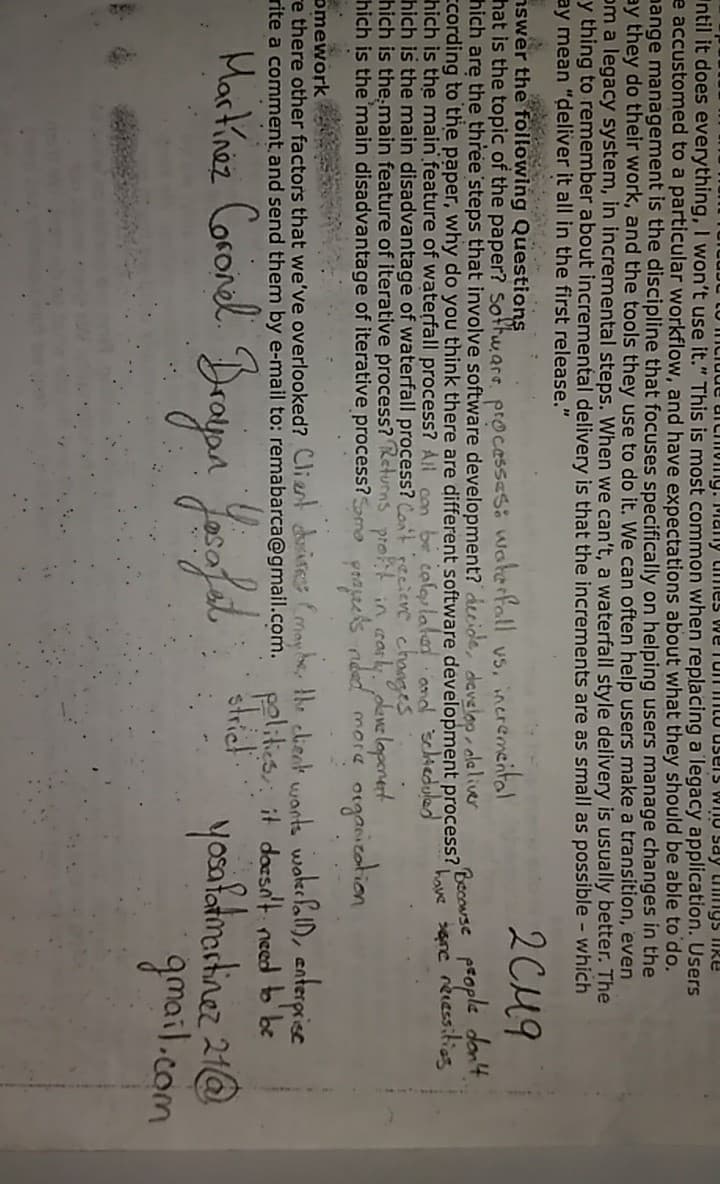 ntil it does everything, I won't use it." This is most common when replacing a legacy application. Users
e accustomed to a particular workflow, and have expectations about what they should be able to do.
ange management is the discipline that focuses specifically on helping users manage changes in the
ay they do their work, and the tools they use to do it. We can often help users make a transition, even
om a legacy system, in incremental steps. When we can't, a waterfall style delivery is usually better. The
y thing to remember about incremental delivery is that the increments are as small as possible - which
ay mean "deliver it all in the first release."
2CM9
nswer the following Questions
hat is the topic of the paper? Software processes: waterfall vs. incremental
hich are the three steps that involve software development? decide, develop, deliver
ccording to the paper, why do you think there are different software development process? Because people don't have same necessities
hich is the main feature of waterfall process? All can be and scheduled
hich is the main disadvantage of waterfall process? Can't recieve changes
hich is the main feature of iterative process? Returns profit in early development
hich is the main disadvantage of iterative process? Some proyects need more organization
omework
re there other factors that we've overlooked? Client (maybe, the client wants waterfall), enterprise
politics, it doesn't need to be
strict
rite a comment and send them by e-mail to: remabarca@gmail.com.
Martínez Coronel Brayan Yosafat
yosafatmartinez21@
gmail.com